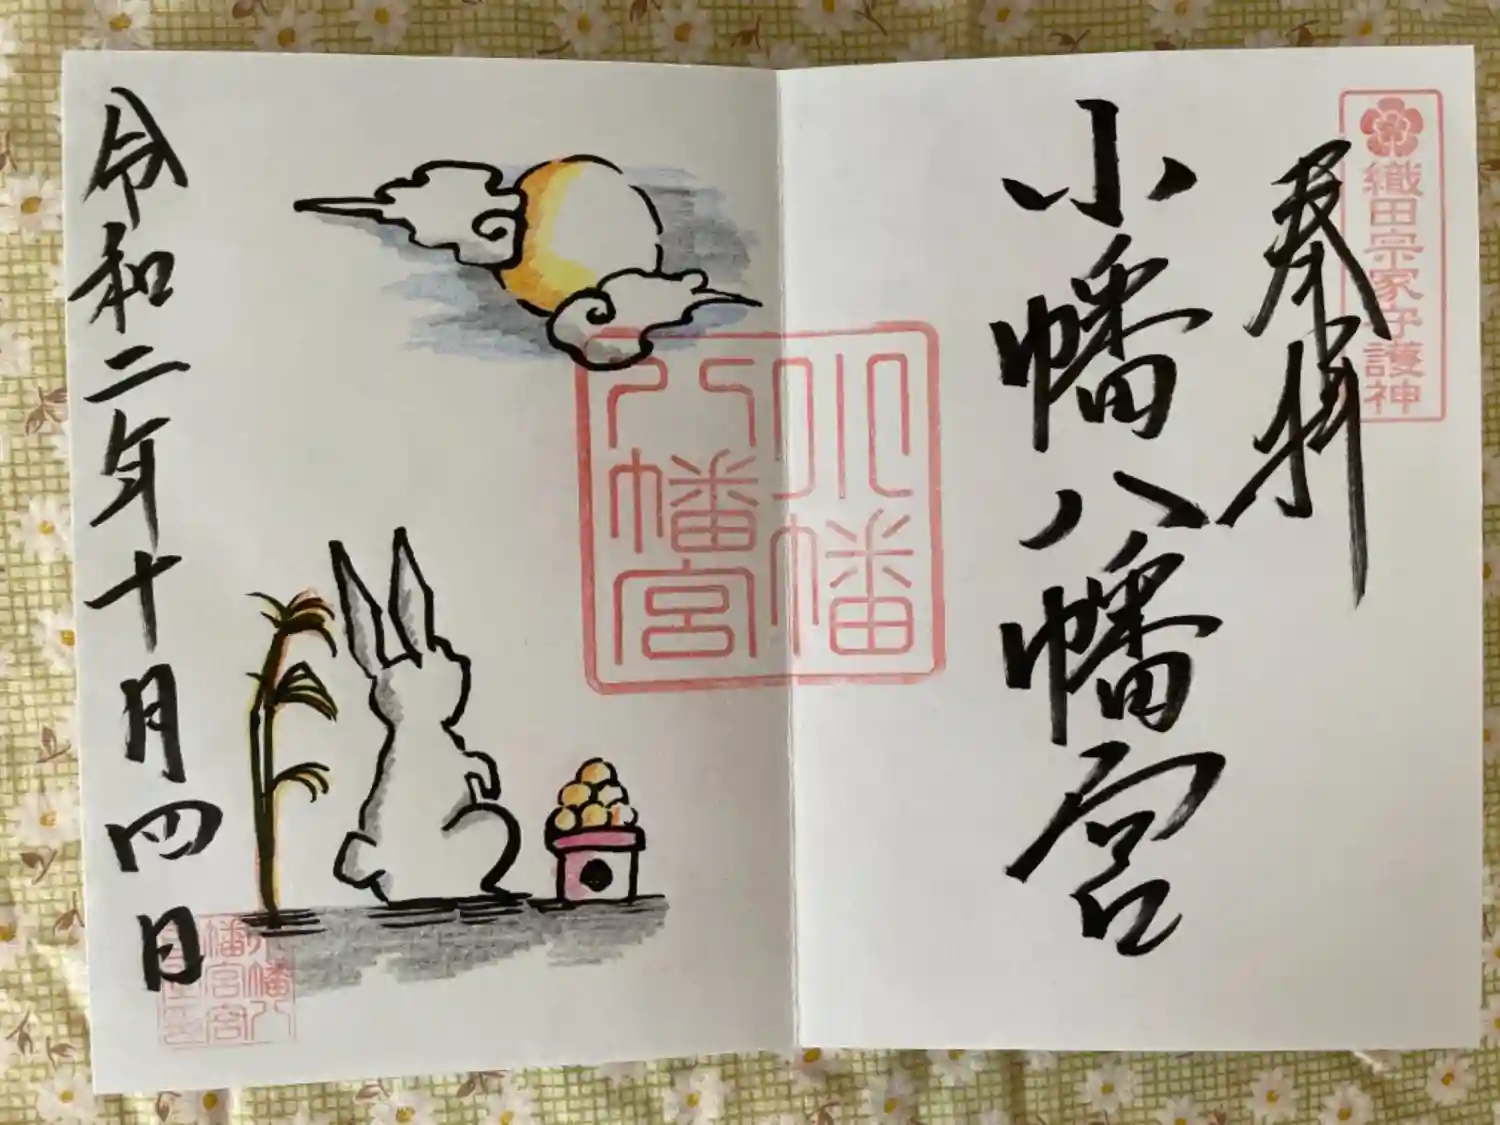 織田宗家守護神
奉拝
小幡八幡宮
小幡
八幡宮
令和二年十月四日
小幡八
幡宮宮